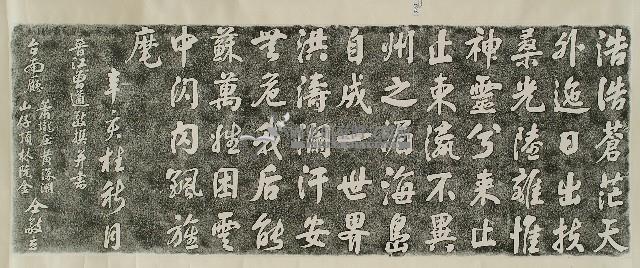 浩浩蒼茫天
外逸日出扶
桑光陸離惟
神靈兮来止
止東瀛不異
州之湄海島
自成一世界
洪濤瀾汗安
無危我后能
蘇萬姓困雲
中閃閃飄旌
麾
辛亥桂秋月
晉江曾遒敬撰并書
台南廳
蕭瓏庄黃深淵
山仔頂林
金
仝敬立